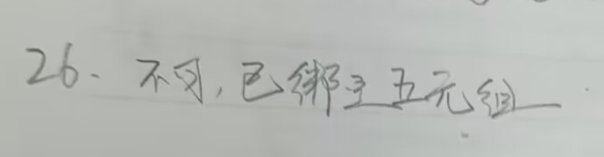 26、不可,已绑定五元组